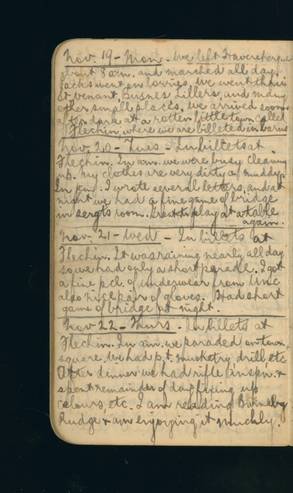 Nov. 19 - Mon. We left
about 8 a.m. and marched all day.
Packs went on lorries. We went thru
St. Venant, Busnes, Lillers, and many
other small places. We arrived soon
after dark at a rotten little town called
Flechin, where we are billeted in barns
Nov. 20 - Tues - In billets at
Flechin. In a.m. we were busy cleaning
up. My clothes are very dirty & muddy.
In p.m. I wrote several letters, and at
night we had a fine game of bridge
in sergts room. Great to play at a table
again.
Nov. 21 - Wed - In billets at
Flechin. It was raining nearly all day
so we had only a short parade. I got
a fine pcl. of underwear from
also nice pair of gloves. Had short
game of bridge at night.
Nov 22 - Thurs. In billets at
Flechin. In a.m. we paraded on town
square. We had p.t. musketry, drill etc
After dinner we had rifle inspn. &
spent remainder of day fixing up
colours, etc. I am reading Barnaby
Rudge & am enjoying it muchly.